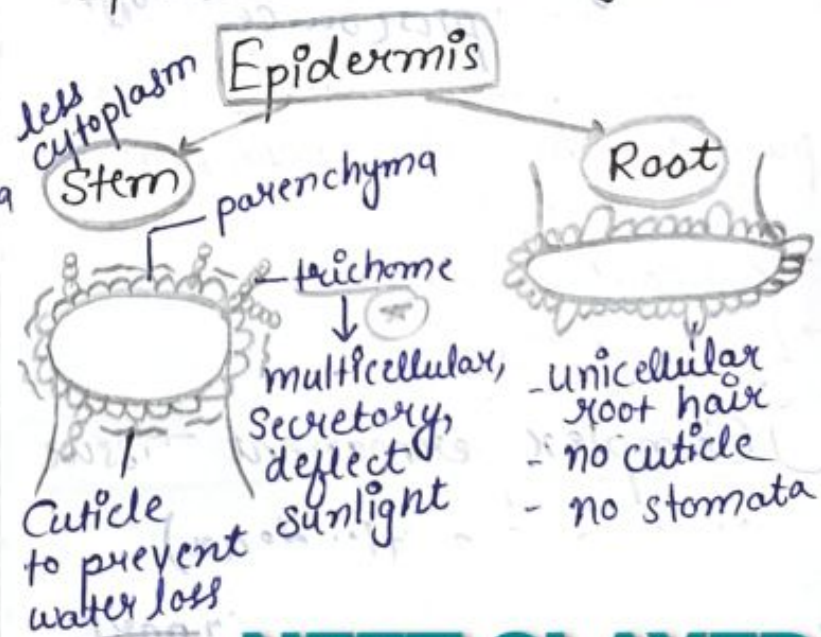 Epidermis
less
cytoplasm
Stem
Root
parenchyma
trichome
multicellular,
secretory,
deflect
sunlight
Cuticle
to prevent
water loss
- unicellular
root hair
- no cuticle
- no stomata